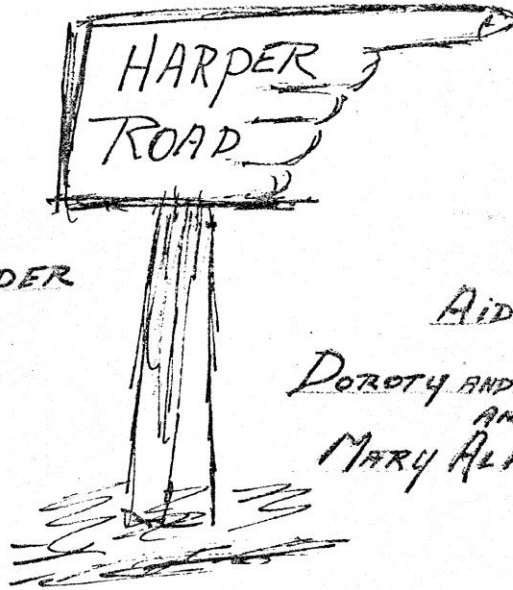 HARPER
ROAD
DER
AID
DOROTY AND
AN
MARY ALA